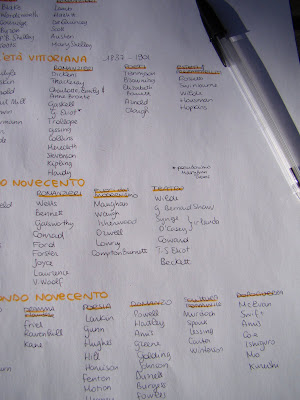 Blake
Wordsworth
Coleridge
Byron
P.B. Shelley
Keats
Lamb
Hazlitt
De Quincey
Scott
Austen
Mary Shelley
ETÀ VITTORIANA 1837-1901
ROMANZIERI
Dickens
Thackeray
Charlotte, Emily &
Anne Brontë
Gaskell
G. Eliot *
Trollope
Gissing
Collins
Meredith
Stevenson
Kipling
Hardy
POESIA
Tennyson
Browning
Elizabeth
Barrett
Arnold
Clough
Rossetti
Swinburne
Wilde
Housman
Hopkins
* pseudonimo
Mary Ann
Evans
NOVECENTO
ROMANZIERI
Wells
Bennett
Galsworthy
Conrad
Ford
Forster
Joyce
Lawrence
V. Woolf
Maugham
Waugh
Isherwood
Orwell
Lowry
Compton Burnett
TEATRO
Wilde
G. Bernard Shaw
Synge
O'Casey
irlanda
Coward
T.S. Eliot
Beckett
SECONDO NOVECENTO
Friel
Ravenhill
Kane
POESIA
Larkin
Gunn
Hughes
Hill
Harrison
Fenton
Motion
Heaney
ROMANZO
Powell
Hartley
Amis
Greene
Golding
Johnson
Durrell
Burgess
Fowles
Murdoch
Spark
Lessing
Carter
Winterson
McEwan
Swift
Amis
Coe
Ishiguro
Mo
Kureishi